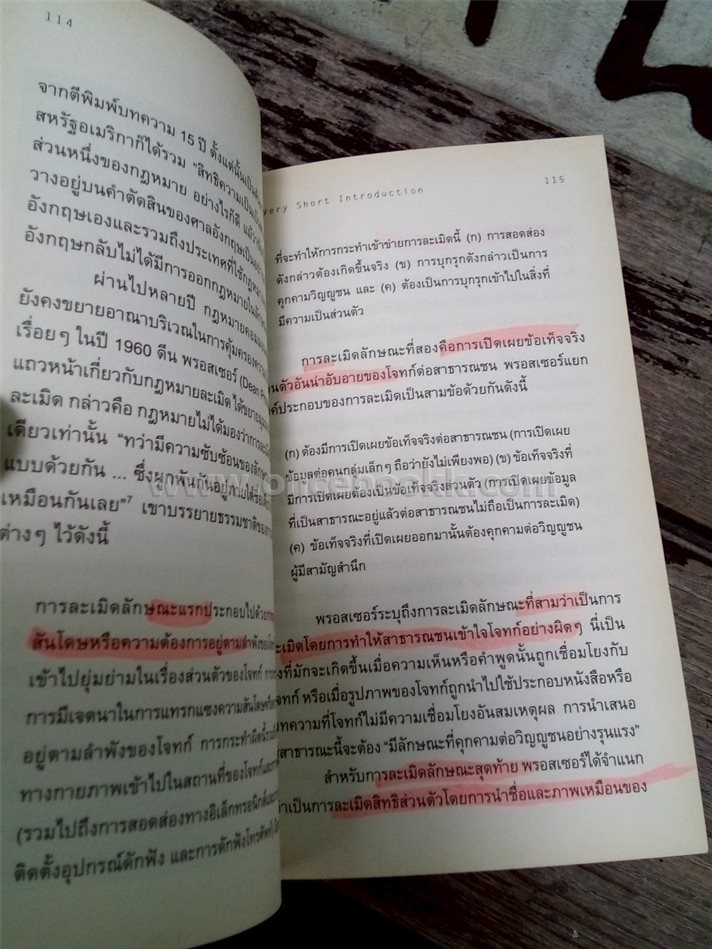 114
จากตีพิมพ์บทความ 15 ปี ตั้งแต่นั้นเป็นต้น
สหรัฐอเมริกาก็ได้รวม “สิทธิความเป็น
ส่วนหนึ่งของกฎหมาย อย่างไรก็ดี แม้ว่า
วางอยู่บนคำตัดสินของศาลอังกฤษเป็น
อังกฤษเองและรวมถึงประเทศที่ใช้กฎหมาย
อังกฤษกลับไม่ได้มีการออกกฎหมายในลัก
ผ่านไปหลายปี กฎหมายคอมมอน
ยังคงขยายอาณาบริเวณในการคุ้มครองความ
เรื่อยๆ ในปี 1960 ดีน พรอสเซอร์ (Dean Pr
แถวหน้าเกี่ยวกับกฎหมายละเมิด ได้ขยาย
ละเมิด กล่าวคือ กฎหมายไม่ได้มองว่าการละเ
เดียวเท่านั้น “ทว่ามีความซับซ้อนของลักษ
แบบด้วยกัน ... ซึ่งผูกพันกันอยู่ภายใต้ชื่อ
เหมือนกันเลย”7 เขาบรรยายธรรมชาติของ
ต่างๆ ไว้ดังนี้
การละเมิดลักษณะแรกประกอบไปด้วย
สันโดษหรือความต้องการอยู่ตามลำพังของ
เข้าไปยุ่มย่ามในเรื่องส่วนตัวของโจทก์ การ
การมีเจตนาในการแทรกแซงความสันโดษ
อยู่ตามลำพังของโจทก์ การกระทำผิดนี้รวม
ทางกายภาพเข้าไปในสถานที่ของโจทก์และ
(รวมไปถึงการสอดส่องทางอิเล็กทรอนิกส์และ
ติดตั้งอุปกรณ์ดักฟัง และการดักฟังโทรศัพท์)
Very Short Introduction 115
ที่จะทำให้การกระทำเข้าข่ายการละเมิดนี้ (ก) การสอดส่อง
ดังกล่าวต้องเกิดขึ้นจริง (ข) การบุกรุกดังกล่าวเป็นการ
คุกคามวิญญูชน และ (ค) ต้องเป็นการบุกรุกเข้าไปในสิ่งที่
มีความเป็นส่วนตัว
การละเมิดลักษณะที่สองคือการเปิดเผยข้อเท็จจริง
นตัวอันน่าอับอายของโจทก์ต่อสาธารณชน พรอสเซอร์แยก
ค์ประกอบของการละเมิดเป็นสามข้อด้วยกันดังนี้
(ก) ต้องมีการเปิดเผยข้อเท็จจริงต่อสาธารณชน (การเปิดเผย
ข้อมูลต่อคนกลุ่มเล็กๆ ถือว่ายังไม่เพียงพอ) (ข) ข้อเท็จจริงที่
มีการเปิดเผยต้องเป็นข้อเท็จจริงส่วนตัว (การเปิดเผยข้อมูล
ที่เป็นสาธารณะอยู่แล้วต่อสาธารณชนไม่ถือเป็นการละเมิด)
(ค) ข้อเท็จจริงที่เปิดเผยออกมานั้นต้องคุกคามต่อวิญญูชน
ผู้มีสามัญสำนึก
พรอสเซอร์ระบุถึงการละเมิดลักษณะที่สามว่าเป็นการ
ะเมิดโดยการทำให้สาธารณชนเข้าใจโจทก์อย่างผิดๆ นี่เป็น
งที่มักจะเกิดขึ้นเมื่อความเห็นหรือคำพูดนั้นถูกเชื่อมโยงกับ
จทก์ หรือเมื่อรูปภาพของโจทก์ถูกนำไปใช้ประกอบหนังสือหรือ
ทความที่โจทก์ไม่มีความเชื่อมโยงอันสมเหตุผล การนำเสนอ
สาธารณะนี้จะต้อง “มีลักษณะที่คุกคามต่อวิญญูชนอย่างรุนแรง”
สำหรับการละเมิดลักษณะสุดท้าย พรอสเซอร์ได้จำแนก
ว่าเป็นการละเมิดสิทธิส่วนตัวโดยการนำชื่อและภาพเหมือนของ